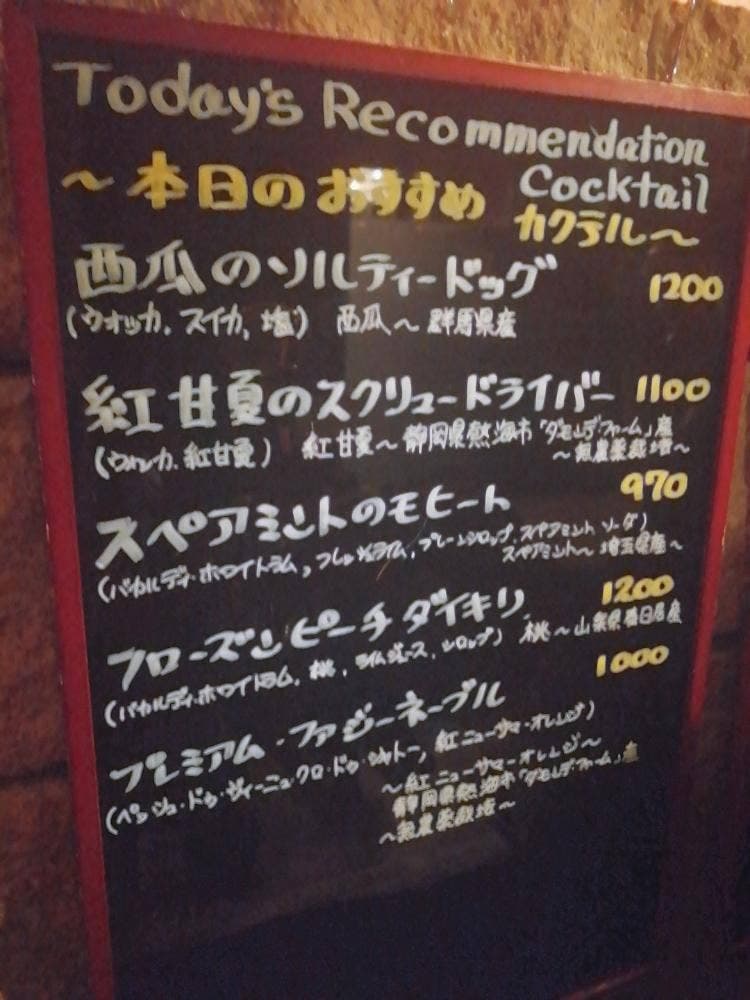 Today's Recommendation
Cocktail
～本日のおすすめ
カクテル～
西瓜のソルティードッグ 1200
(ウオッカ, スイカ, 塩) 西瓜～群馬県産
紅甘夏のスクリュードライバー 1100
(ウオッカ, 紅甘夏) 紅甘夏～静岡県熱海市「ダモンデ・ファーム」産
～無農薬栽培～
スペアミントのモヒート 970
(バカルディ・ホワイトラム, フレッシュライム, プレーンシロップ, スペアミント, ソーダ)
スペアミント～埼玉県産～
フローズンピーチダイキリ 1200
(バカルディ・ホワイトラム, 桃, ライムジュース, シロップ) 桃～山梨県春日居産
プレミアム・ファジーネーブル 1000
(ペシェ・ドゥ・ヴィーニュ・クロ・ドゥ・シャトー, 紅ニューサマーオレンジ)
～紅ニューサマーオレンジ～
静岡県熱海市「ダモンデ・ファーム」産
～無農薬栽培～